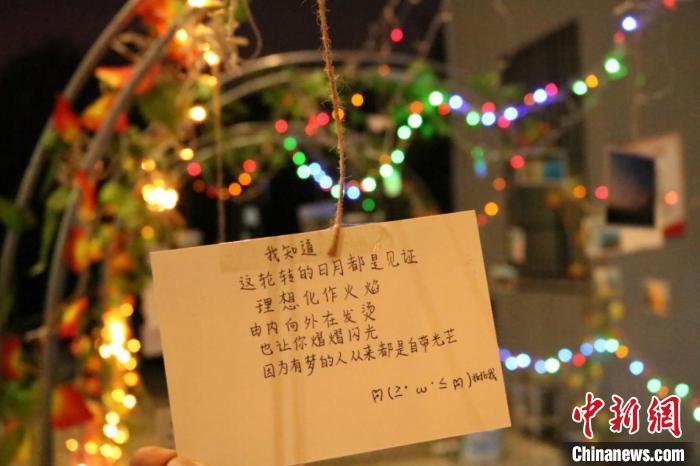 我知道
这轮转的日月都是见证
理想化作火焰
由内向外在发烫
也让你熠熠闪光
因为有梦的人从来都是自带光芒
中新网
Chinanews.com